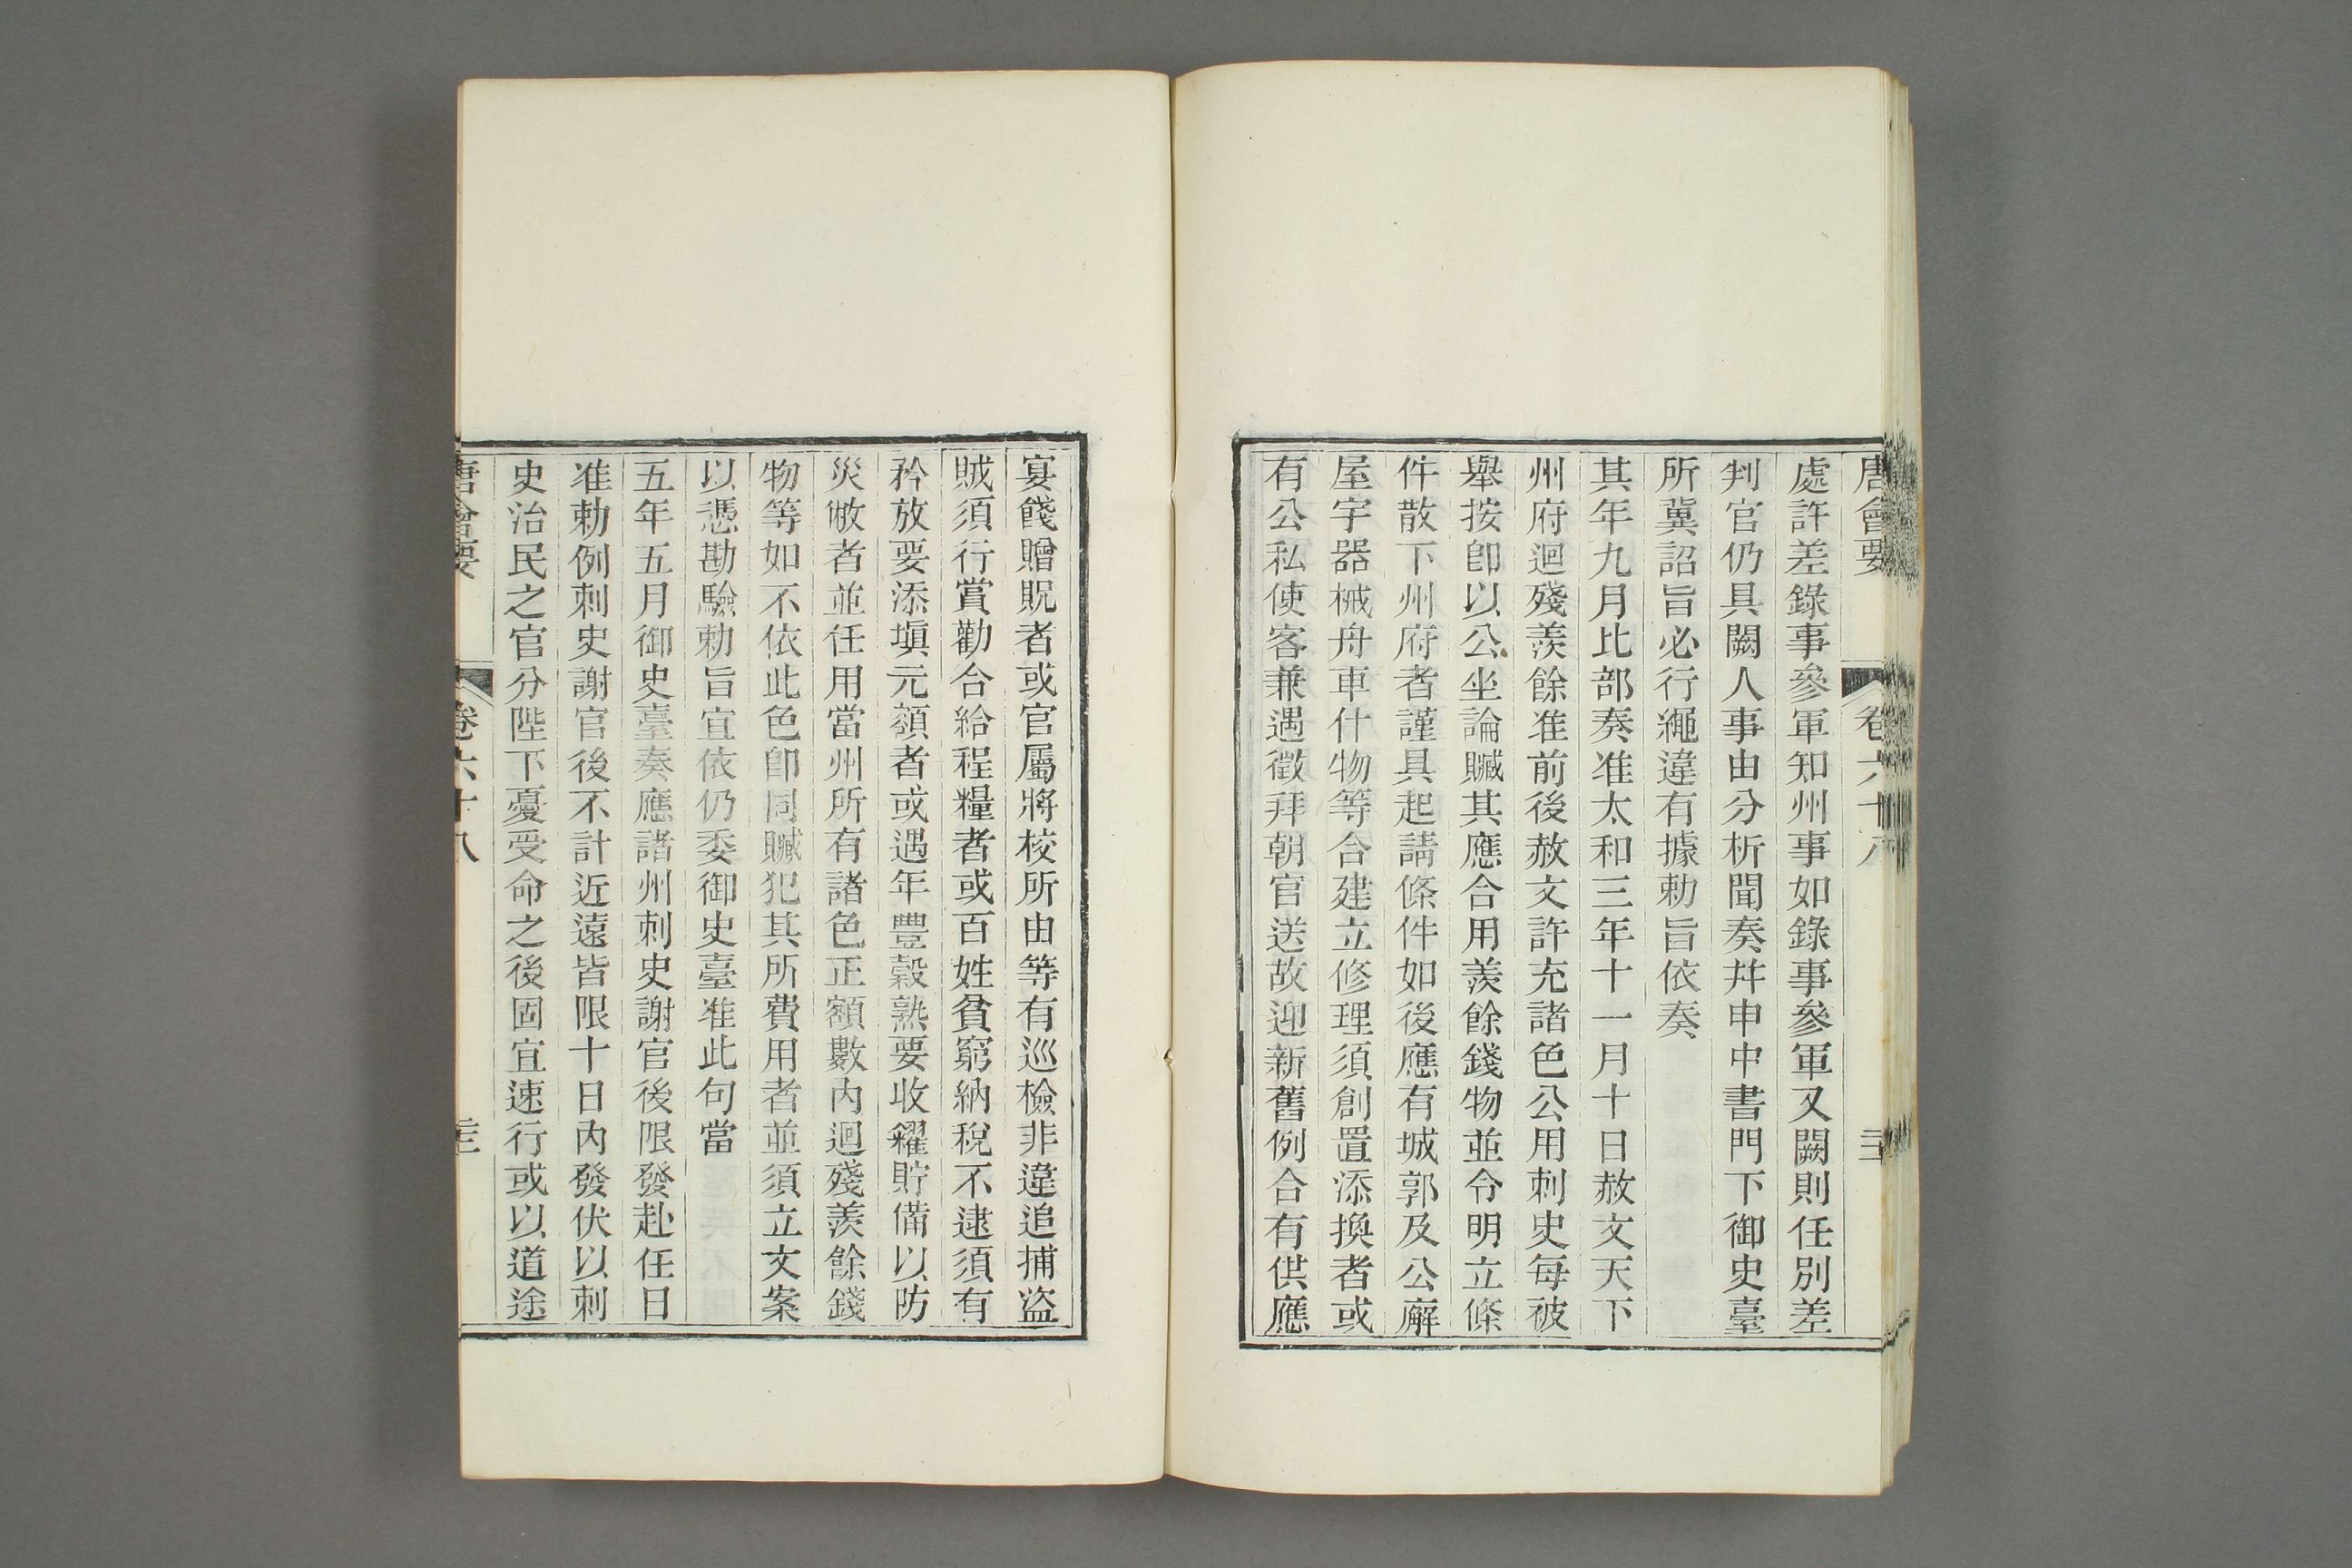 唐會要 卷六十八
處許差錄事參軍知州事如錄事參軍又闕則任別差
判官仍具闕人事由分析聞奏幷申中書門下御史臺
所冀詔旨必行繩違有據勅旨依奏
其年九月比部奏准太和三年十一月十日赦文天下
州府迴殘羨餘准前後赦文許充諸色公用刺史每被
舉按卽以公坐論贓其應合用羨餘錢物並令明立條
件散下州府者謹具起請條件如後應有城郭及公廨
屋宇器械舟車什物等合建立修理須創置添換者或
有公私使客兼遇徵拜朝官送故迎新舊例合有供應
宴餞贈貺者或官屬將校所由等有巡檢非違追捕盜
賊須行賞勸合給程糧者或百姓貧窮納稅不逮須有
矜放要添塡元額者或遇年豐穀熟要收糴貯備以防
災敝者並任用當州所有諸色正額數內迴殘羨餘錢
物等如不依此色卽同贓犯其所費用者並須立文案
以憑勘驗勅旨宜依仍委御史臺准此句當
五年五月御史臺奏應諸州刺史謝官後限發赴任日
准勅例刺史謝官後不計近遠皆限十日內發伏以刺
史治民之官分陛下憂受命之後固宜速行或以道途
唐會要 卷六十八